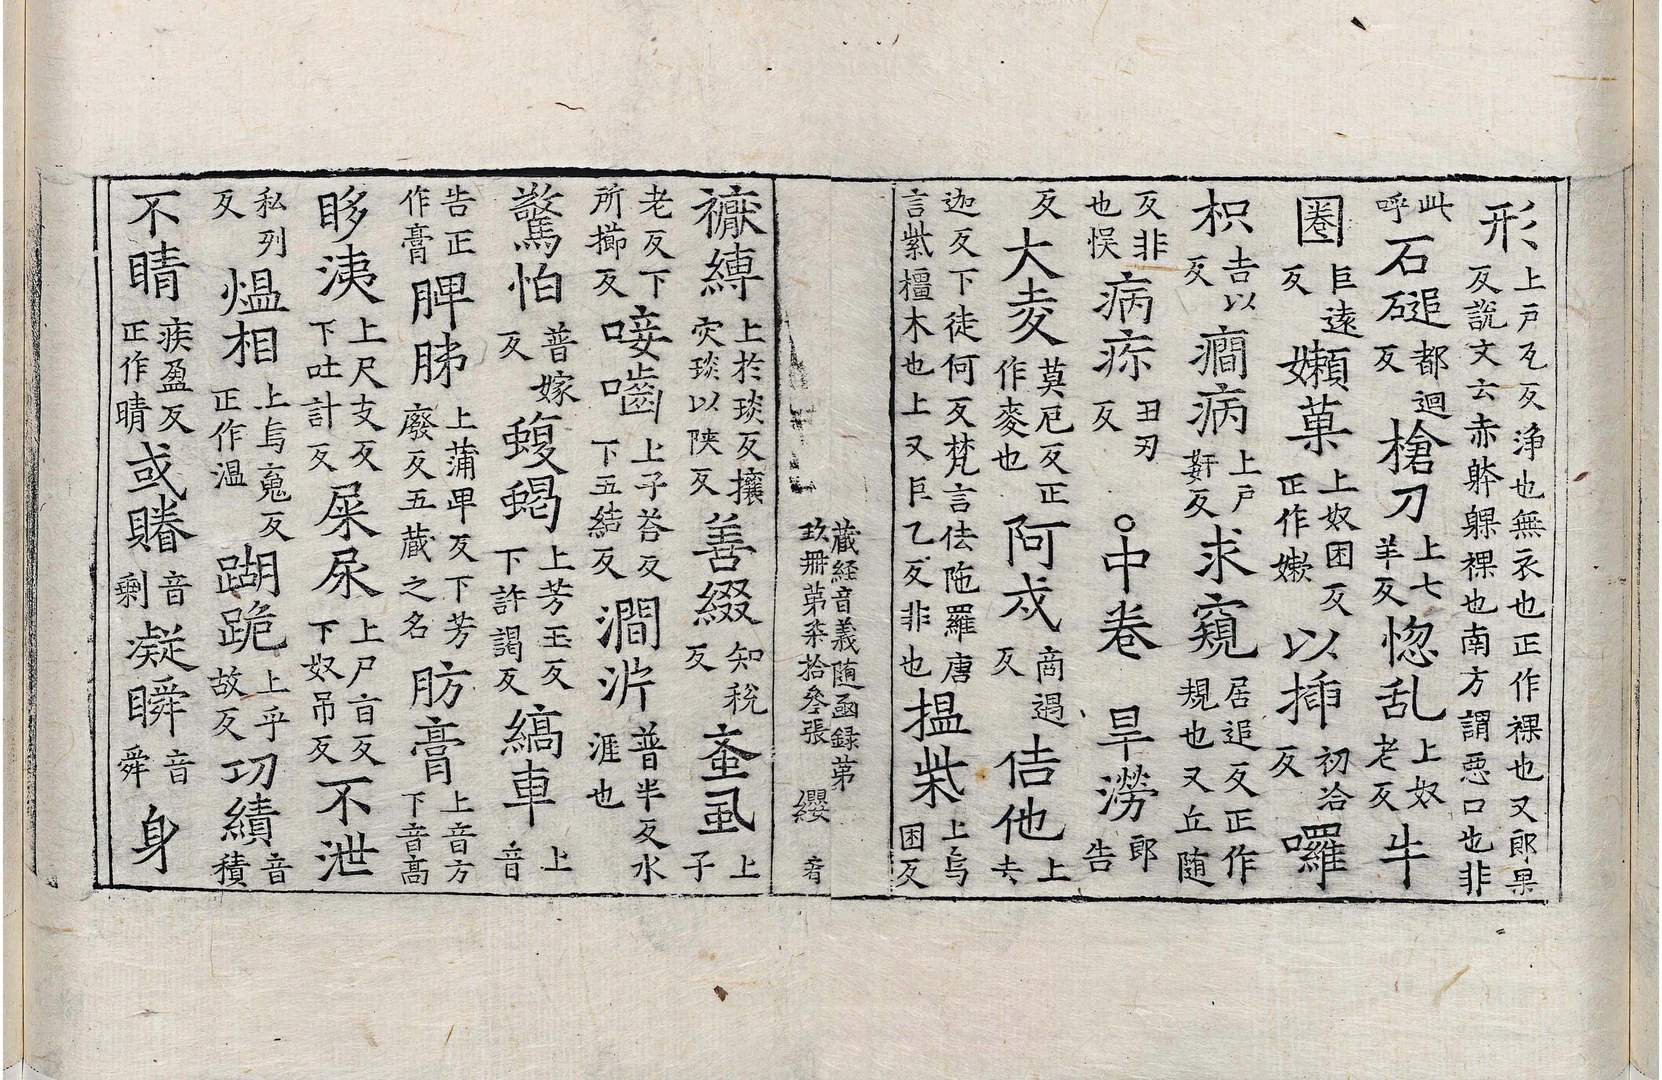 形上戸瓦反浄也無衣也正作裸也又郎果反説文云赤躰躶裸也南方謂悪口也非
此呼石磓都迴反槍刀上七羊反惚乱上奴老反牛
圈巨遠反嬾菓上奴困反正作嫰以揷初洽反囉
枳吉以反癇病上戸姧反求窺居追反正作規也又丘随
反非也悮病疢丑刃反○中卷旱澇郎告
反大麦莫厄反正作麥也阿戍商遇反佉他上去
迦反下徒何反梵言佉陁羅唐言紫橿木也上又巨乙反非也搵柴上烏困反
藏経音義随函録第玖册第柒拾叄張 纓
襧縛上於琰反攘灾琰以陜反善綴知税反蚉虱上子
老反下所擳反唼嚙上子荅反下五結反澗泮普半反水涯也
驚怕普嫁反蝮蝎上芳玉反下許謁反縞車上音
告正作膏脾胇上蒲卑反下芳廢反五藏之名肪膏上音方下音髙
眵洟上尺支反下吐計反屎尿上尸旨反下奴吊反不泄
私列反熅相上烏䰟反正作温䠒跪上乎故反功績音積
不睛疾盈反正作晴或賰音剩凝瞬音舜身